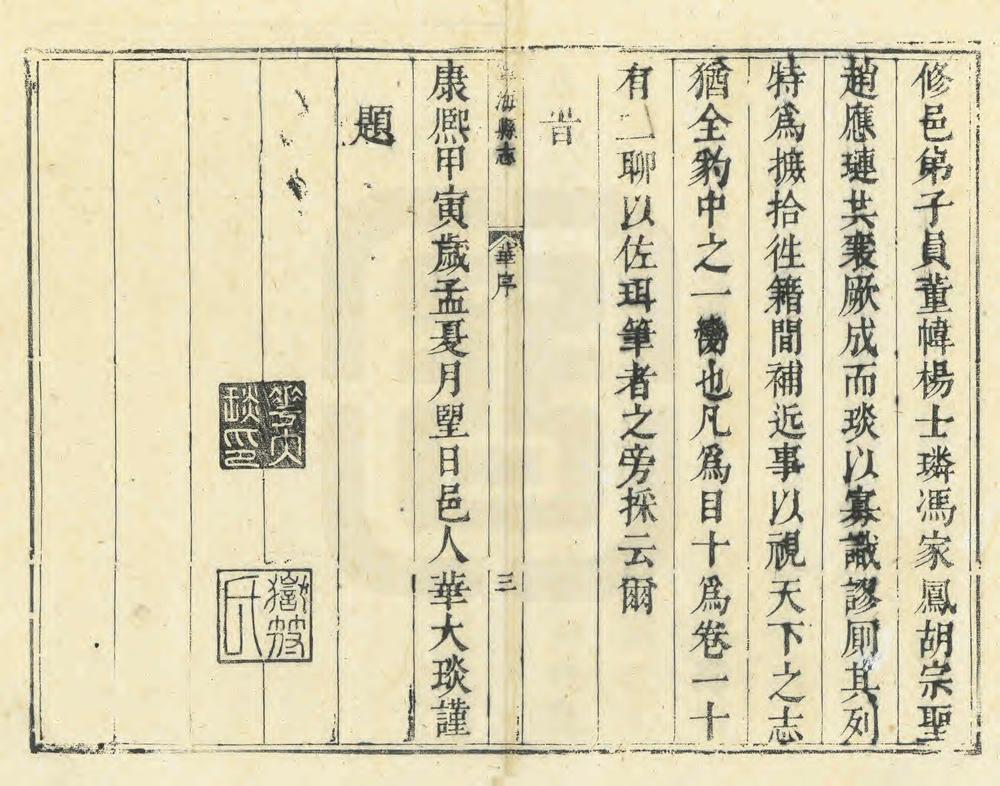 修邑弟子員董幃楊士璘馮家鳳胡宗聖
趙應璉共襄厥成而琰以寡識謬厠其列
特爲摭拾徃籍間補近事以視天下之志
猶全豹中之一臠也凡爲目十爲卷一十
有二聊以佐珥筆者之旁採云爾
旹
海縣志
華序
三
康熙甲寅歲孟夏月望日邑人華大琰謹
題
華大琰印
氏